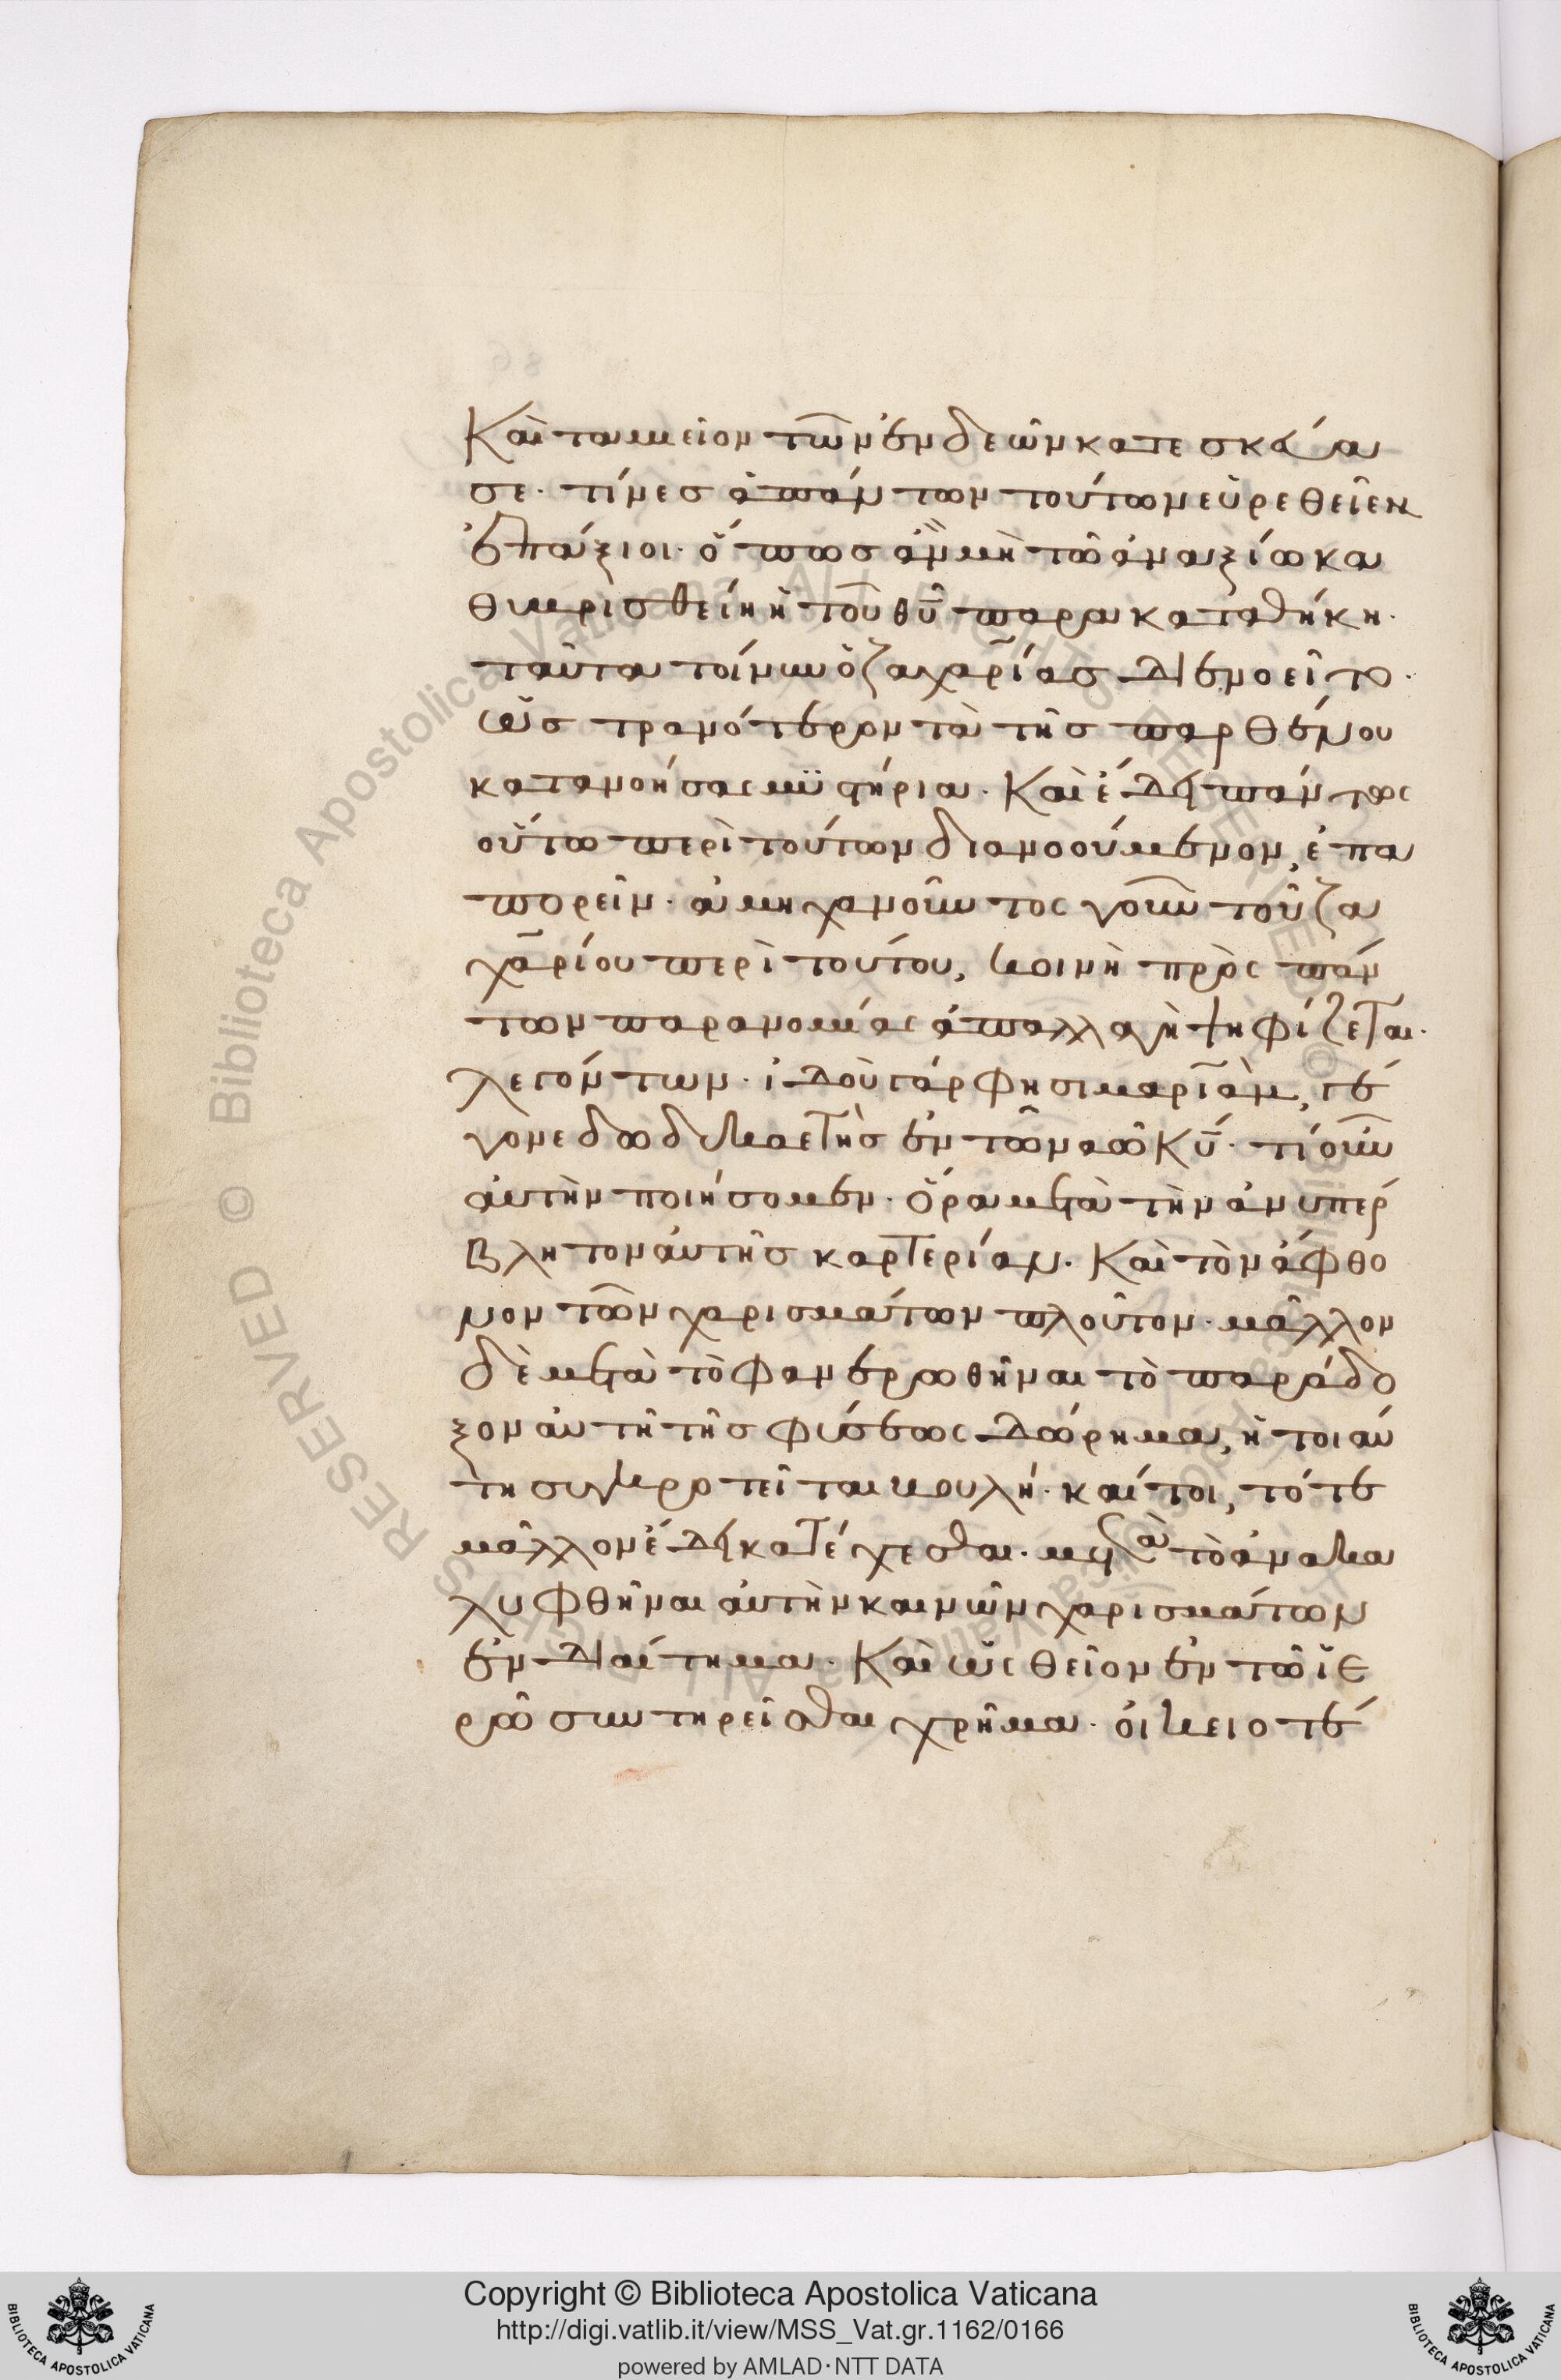 Καὶ ταμιεῖον τῶν ἐνδεῶν κατεσκεύα
σε· τίνες ἁπάντων τούτων εὑρεθεῖεν
ἐπάξιοι· ὅπως ἂν μὴ τῶ ἀναξίω κα
θυβρισθείη ἡ τοῦ θῦ παρακαταθήκη·
ταῦτα τοίνυν ὁ ζαχαρίας διενοεῖτο·
ὡς τρανότερον τὰ τῆς παρθένου
κατανοήσας μϋστήρια· Καὶ ἔδει πάντως
οὕτω περὶ τούτων διανοούμενον, ἐπα
πορεῖν· ἀμηχανοῦντος γοῦν τοῦ ζα
χαρίου περὶ τούτου, κοινὴ πρὸς πάν
των παρανομίας ἀπαλλαγὴ ψηφίζεται·
λεγόντων· ἰδοὺ γάρ φησι μαριὰμ, γέ
γονε δωδεκαετὴς ἐν τῶ ναῶ Κῦ· τί οὖν
αὐτὴν ποιήσομεν· Ὅρα μετὰ τὴν ἀνυπέρ
βλητον αὐτῆς καρτερίαν· Καὶ τὸν ἄφθο
νον τῶν χαρισμάτων πλοῦτον· μᾶλλον
δὲ μετὰ τὸ φανερωθῆναι τὸ παράδο
ξον αὐτῆ τῆς φύσεως δώρημα, ἡ τοιαύ
τη συγκροτεῖται βουλή· καίτοι, τότε
μᾶλλον ἔδει κατέχεσθαι· μετὰ τὸ ἀνακα
λυφθῆναι αὐτὴν καινῶν χαρισμάτων
ἐνδιαίτημα· Καὶ ὡς θεῖον ἐν τῶ ἱε
ρῶ συντηρεῖσθαι χρῆμα· οἰκειοτέ
Copyright © Biblioteca Apostolica Vaticana
http://digi.vatlib.it/view/MSS_Vat.gr.1162/0166
powered by AMLAD·NTT DATA